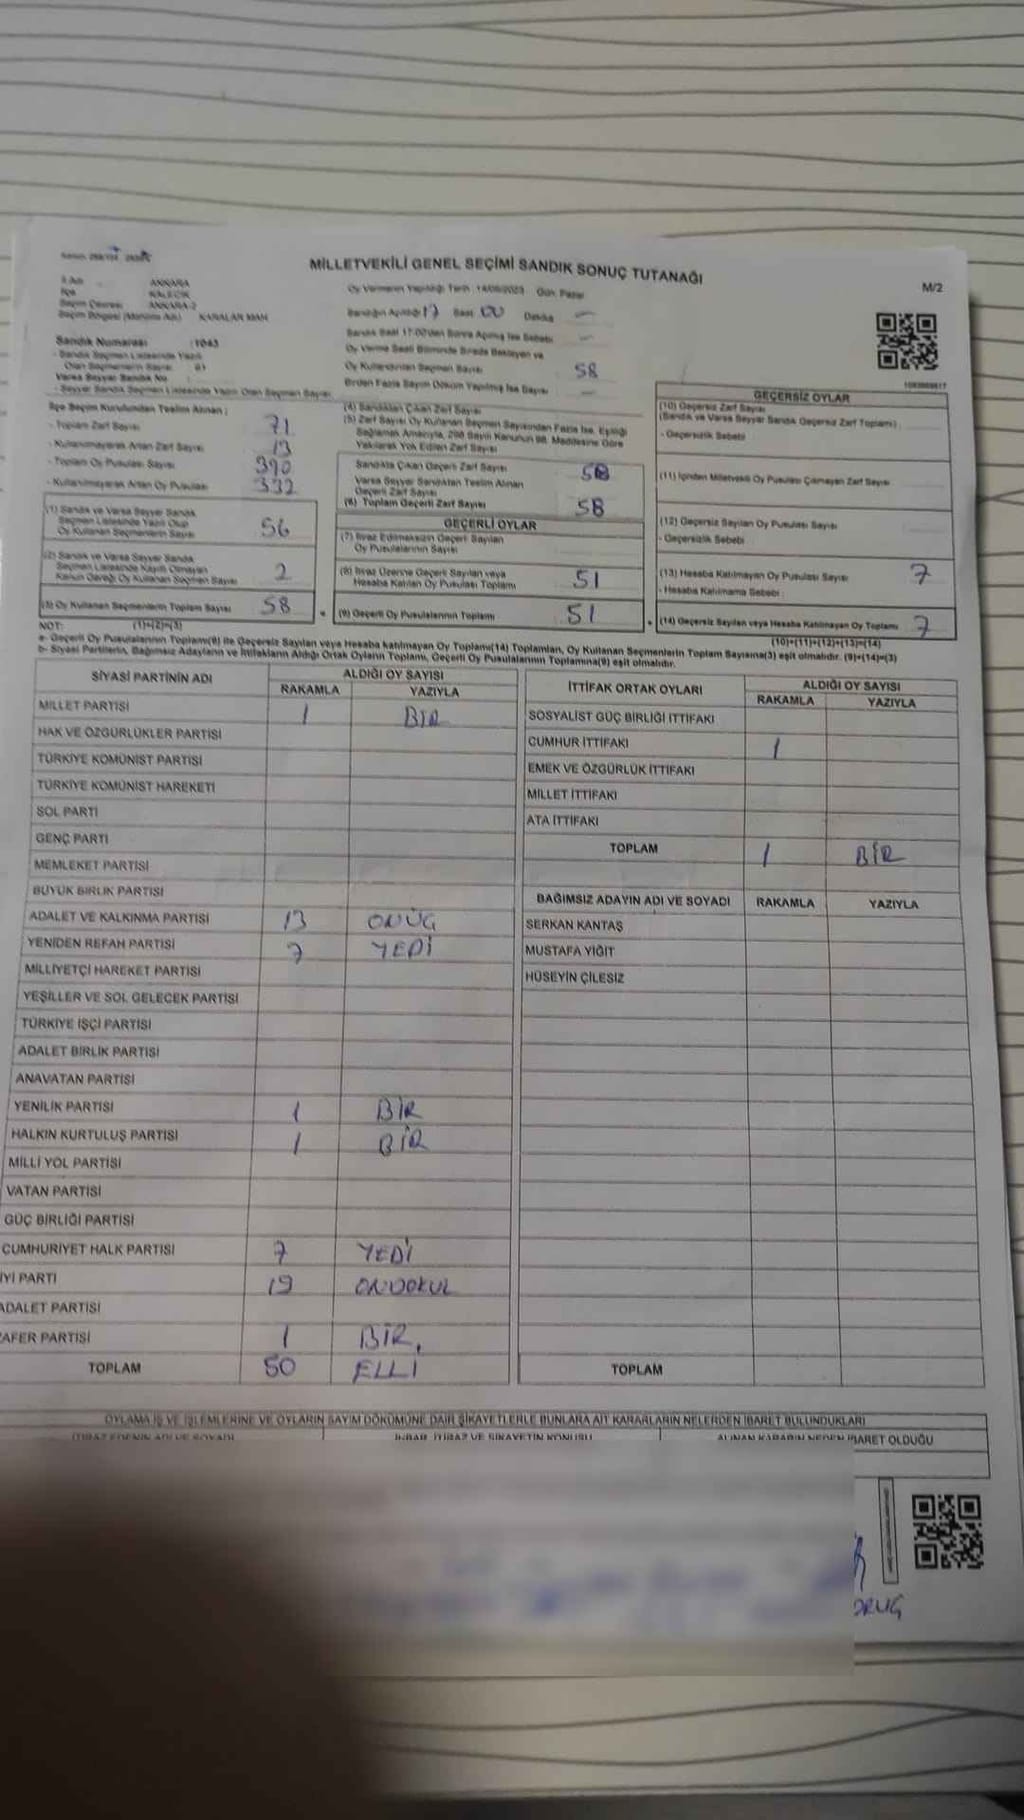 MİLLETVEKİLİ GENEL SEÇİMİ SANDIK SONUÇ TUTANAĞI
M/2
İli Adı : ANKARA
İlçe : KALECİK
Seçim Çevresi : ANKARA-2
Seçim Bölgesi (Muhtarlık Adı) : KARALAR MAH
Oy Vermenin Yapıldığı Tarih : 14/05/2023 Gün: Pazar
Sandığın Açıldığı 17 Saat 00 Dakika -
Sandık Saat 17:00'den Sonra Açılmış İse Sebebi -
Oy Verme Saati Bitiminde Sırada Bekleyen ve
Oy Kullandırılan Seçmen Sayısı 58
Birden Fazla Sayım Döküm Yapılmış İse Sayısı -
Sandık Numarası : 1043
- Sandık Seçmen Listesinde Yazılı
Olan Seçmenlerin Sayısı 61
Varsa Seyyar Sandık No :
- Seyyar Sandık Seçmen Listesinde Yazılı Olan Seçmen Sayısı
İlçe Seçim Kurulundan Teslim Alınan :
- Toplam Zarf Sayısı 71
- Kullanılmayarak Artan Zarf Sayısı 13
- Toplam Oy Pusulası Sayısı 390
- Kullanılmayarak Artan Oy Pusulası 332
(1) Sandık ve Varsa Seyyar Sandık
Seçmen Listesinde Yazılı Olup
Oy Kullanan Seçmenlerin Sayısı 56
(2) Sandık ve Varsa Seyyar Sandık
Seçmen Listesinde Kayıtlı Olmayan
Kanun Gereği Oy Kullanan Seçmen Sayısı 2
(3) Oy Kullanan Seçmenlerin Toplam Sayısı 58
(1)+(2)=(3)
(4) Sandıktan Çıkan Zarf Sayısı
(5) Zarf Sayısı Oy Kullanan Seçmen Sayısından Fazla İse, Eşitliği
Sağlamak Amacıyla, 298 Sayılı Kanunun 98. Maddesine Göre
Yakılarak Yok Edilen Zarf Sayısı
Sandıkta Çıkan Geçerli Zarf Sayısı 58
Varsa Seyyar Sandıktan Teslim Alınan
Geçerli Zarf Sayısı
(6) Toplam Geçerli Zarf Sayısı 58
GEÇERLİ OYLAR
(7) İtiraz Edilmeksizin Geçerli Sayılan
Oy Pusulalarının Sayısı
(8) İtiraz Üzerine Geçerli Sayılan veya
Hesaba Katılan Oy Pusulası Toplamı 51
(9) Geçerli Oy Pusulalarının Toplamı 51
GEÇERSİZ OYLAR
(10) Geçersiz Zarf Sayısı
(Sandık ve Varsa Seyyar Sandık Geçersiz Zarf Toplamı)
- Geçersizlik Sebebi
(11) İçinden Milletvekili Oy Pusulası Çıkmayan Zarf Sayısı
(12) Geçersiz Sayılan Oy Pusulası Sayısı
- Geçersizlik Sebebi
(13) Hesaba Katılmayan Oy Pusulası Sayısı 7
- Hesaba Katılmama Sebebi :
(14) Geçersiz Sayılan veya Hesaba Katılmayan Oy Toplamı 7
(10)+(11)+(12)+(13)=(14)
NOT:
a- Geçerli Oy Pusulalarının Toplamı(9) ile Geçersiz Sayılan veya Hesaba katılmayan Oy Toplamı(14) Toplamları, Oy Kullanan Seçmenlerin Toplam Sayısına(3) eşit olmalıdır. (9)+(14)=(3)
b- Siyasi Partilerin, Bağımsız Adayların ve İttifakların Aldığı Ortak Oyların Toplamı, Geçerli Oy Pusulalarının Toplamına(9) eşit olmalıdır.
SİYASİ PARTİNİN ADI ALDIĞI OY SAYISI
RAKAMLA YAZIYLA
MİLLET PARTİSİ 1 BİR
HAK VE ÖZGÜRLÜKLER PARTİSİ
TÜRKİYE KOMÜNİST PARTİSİ
TÜRKİYE KOMÜNİST HAREKETİ
SOL PARTİ
GENÇ PARTİ
MEMLEKET PARTİSİ
BÜYÜK BİRLİK PARTİSİ
ADALET VE KALKINMA PARTİSİ 13 ONÜÇ
YENİDEN REFAH PARTİSİ 7 YEDİ
MİLLİYETÇİ HAREKET PARTİSİ
YEŞİLLER VE SOL GELECEK PARTİSİ
TÜRKİYE İŞÇİ PARTİSİ
ADALET BİRLİK PARTİSİ
ANAVATAN PARTİSİ
YENİLİK PARTİSİ 1 BİR
HALKIN KURTULUŞ PARTİSİ 1 BİR
MİLLİ YOL PARTİSİ
VATAN PARTİSİ
GÜÇ BİRLİĞİ PARTİSİ
CUMHURİYET HALK PARTİSİ 7 YEDİ
İYİ PARTİ 19 ONDOKUZ
ADALET PARTİSİ
ZAFER PARTİSİ 1 BİR
TOPLAM 50 ELLİ
İTTİFAK ORTAK OYLARI ALDIĞI OY SAYISI
RAKAMLA YAZIYLA
SOSYALİST GÜÇ BİRLİĞİ İTTİFAKI
CUMHUR İTTİFAKI 1
EMEK VE ÖZGÜRLÜK İTTİFAKI
MİLLET İTTİFAKI
ATA İTTİFAKI
TOPLAM 1 BİR
BAĞIMSIZ ADAYIN ADI VE SOYADI RAKAMLA YAZIYLA
SERKAN KANTAŞ
MUSTAFA YİĞİT
HÜSEYİN ÇİLESİZ
TOPLAM
OYLAMA İŞ VE İŞLEMLERİNE VE OYLARIN SAYIM DÖKÜMÜNE DAİR ŞİKAYETLERLE BUNLARA AİT KARARLARIN NELERDEN İBARET BULUNDUKLARI
İTİRAZ EDENİN ADI VE SOYADI İHBAR, İTİRAZ VE ŞİKAYETİN KONUSU ALINAN KARARIN NEDEN İBARET OLDUĞU